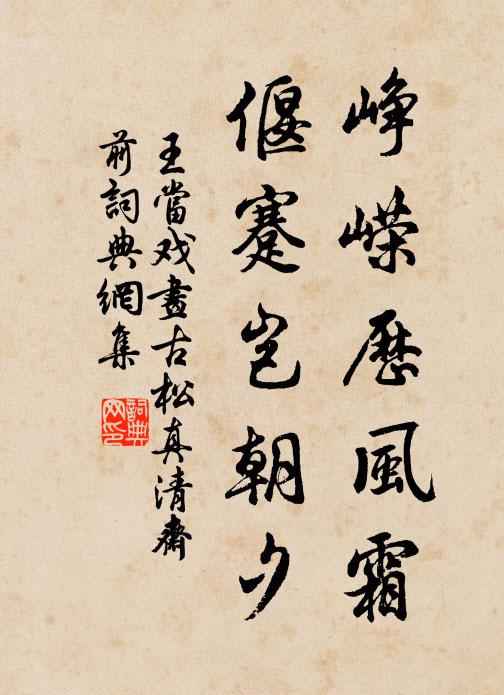 峥嵘歷風霜
偃蹇豈朝夕
王當戏畫古松真清齋
前詞典網集
詞典网印